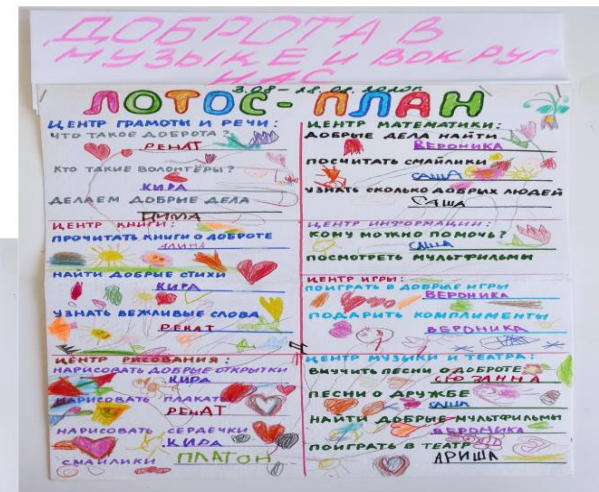 ДОБРОТА В
МУЗЫКЕ И ВОКРУГ
НАС
ЛОТОС-ПЛАН
ЦЕНТР ГРАМОТЫ И РЕЧИ:
ЧТО ТАКОЕ ДОБРОТА?
РЕНАТ
КТО ТАКИЕ ВОЛОНТЁРЫ?
КИРА
ДЕЛАЕМ ДОБРЫЕ ДЕЛА
ДИМА
ЦЕНТР КНИГИ:
ПРОЧИТАТЬ КНИГИ О ДОБРОТЕ
НАЙТИ ДОБРЫЕ СТИХИ
КИРА
УЗНАТЬ ВЕЖЛИВЫЕ СЛОВА
РЕНАТ
ЦЕНТР РИСОВАНИЯ:
НАРИСОВАТЬ ДОБРЫЕ ОТКРЫТКИ
КИРА
НАРИСОВАТЬ ПЛАКАТ
РЕНАТ
НАРИСОВАТЬ СЕРДЕЧКИ
КИРА
СМАЙЛИКИ ПЛАТОН
ЦЕНТР МАТЕМАТИКИ:
ДОБРЫЕ ДЕЛА НАЙТИ
ВЕРОНИКА
ПОСЧИТАТЬ СМАЙЛИКИ
САША
УЗНАТЬ СКОЛЬКО ДОБРЫХ ЛЮДЕЙ
САША
ЦЕНТР ИНФОРМАЦИИ:
КОМУ МОЖНО ПОМОЧЬ?
САША
ПОСМОТРЕТЬ МУЛЬТФИЛЬМЫ
ЦЕНТР ИГРЫ:
ПОИГРАТЬ В ДОБРЫЕ ИГРЫ
ВЕРОНИКА
ПОДАРИТЬ КОМПЛИМЕНТЫ
ВЕРОНИКА
ЦЕНТР МУЗЫКИ И ТЕАТРА:
ВЫУЧИТЬ ПЕСНИ О ДОБРОТЕ
ПЕСНИ О ДРУЖБЕ
САША
НАЙТИ ДОБРЫЕ МУЛЬТФИЛЬМЫ
ВЕРОНИКА
ПОИГРАТЬ В ТЕАТР
АРИША